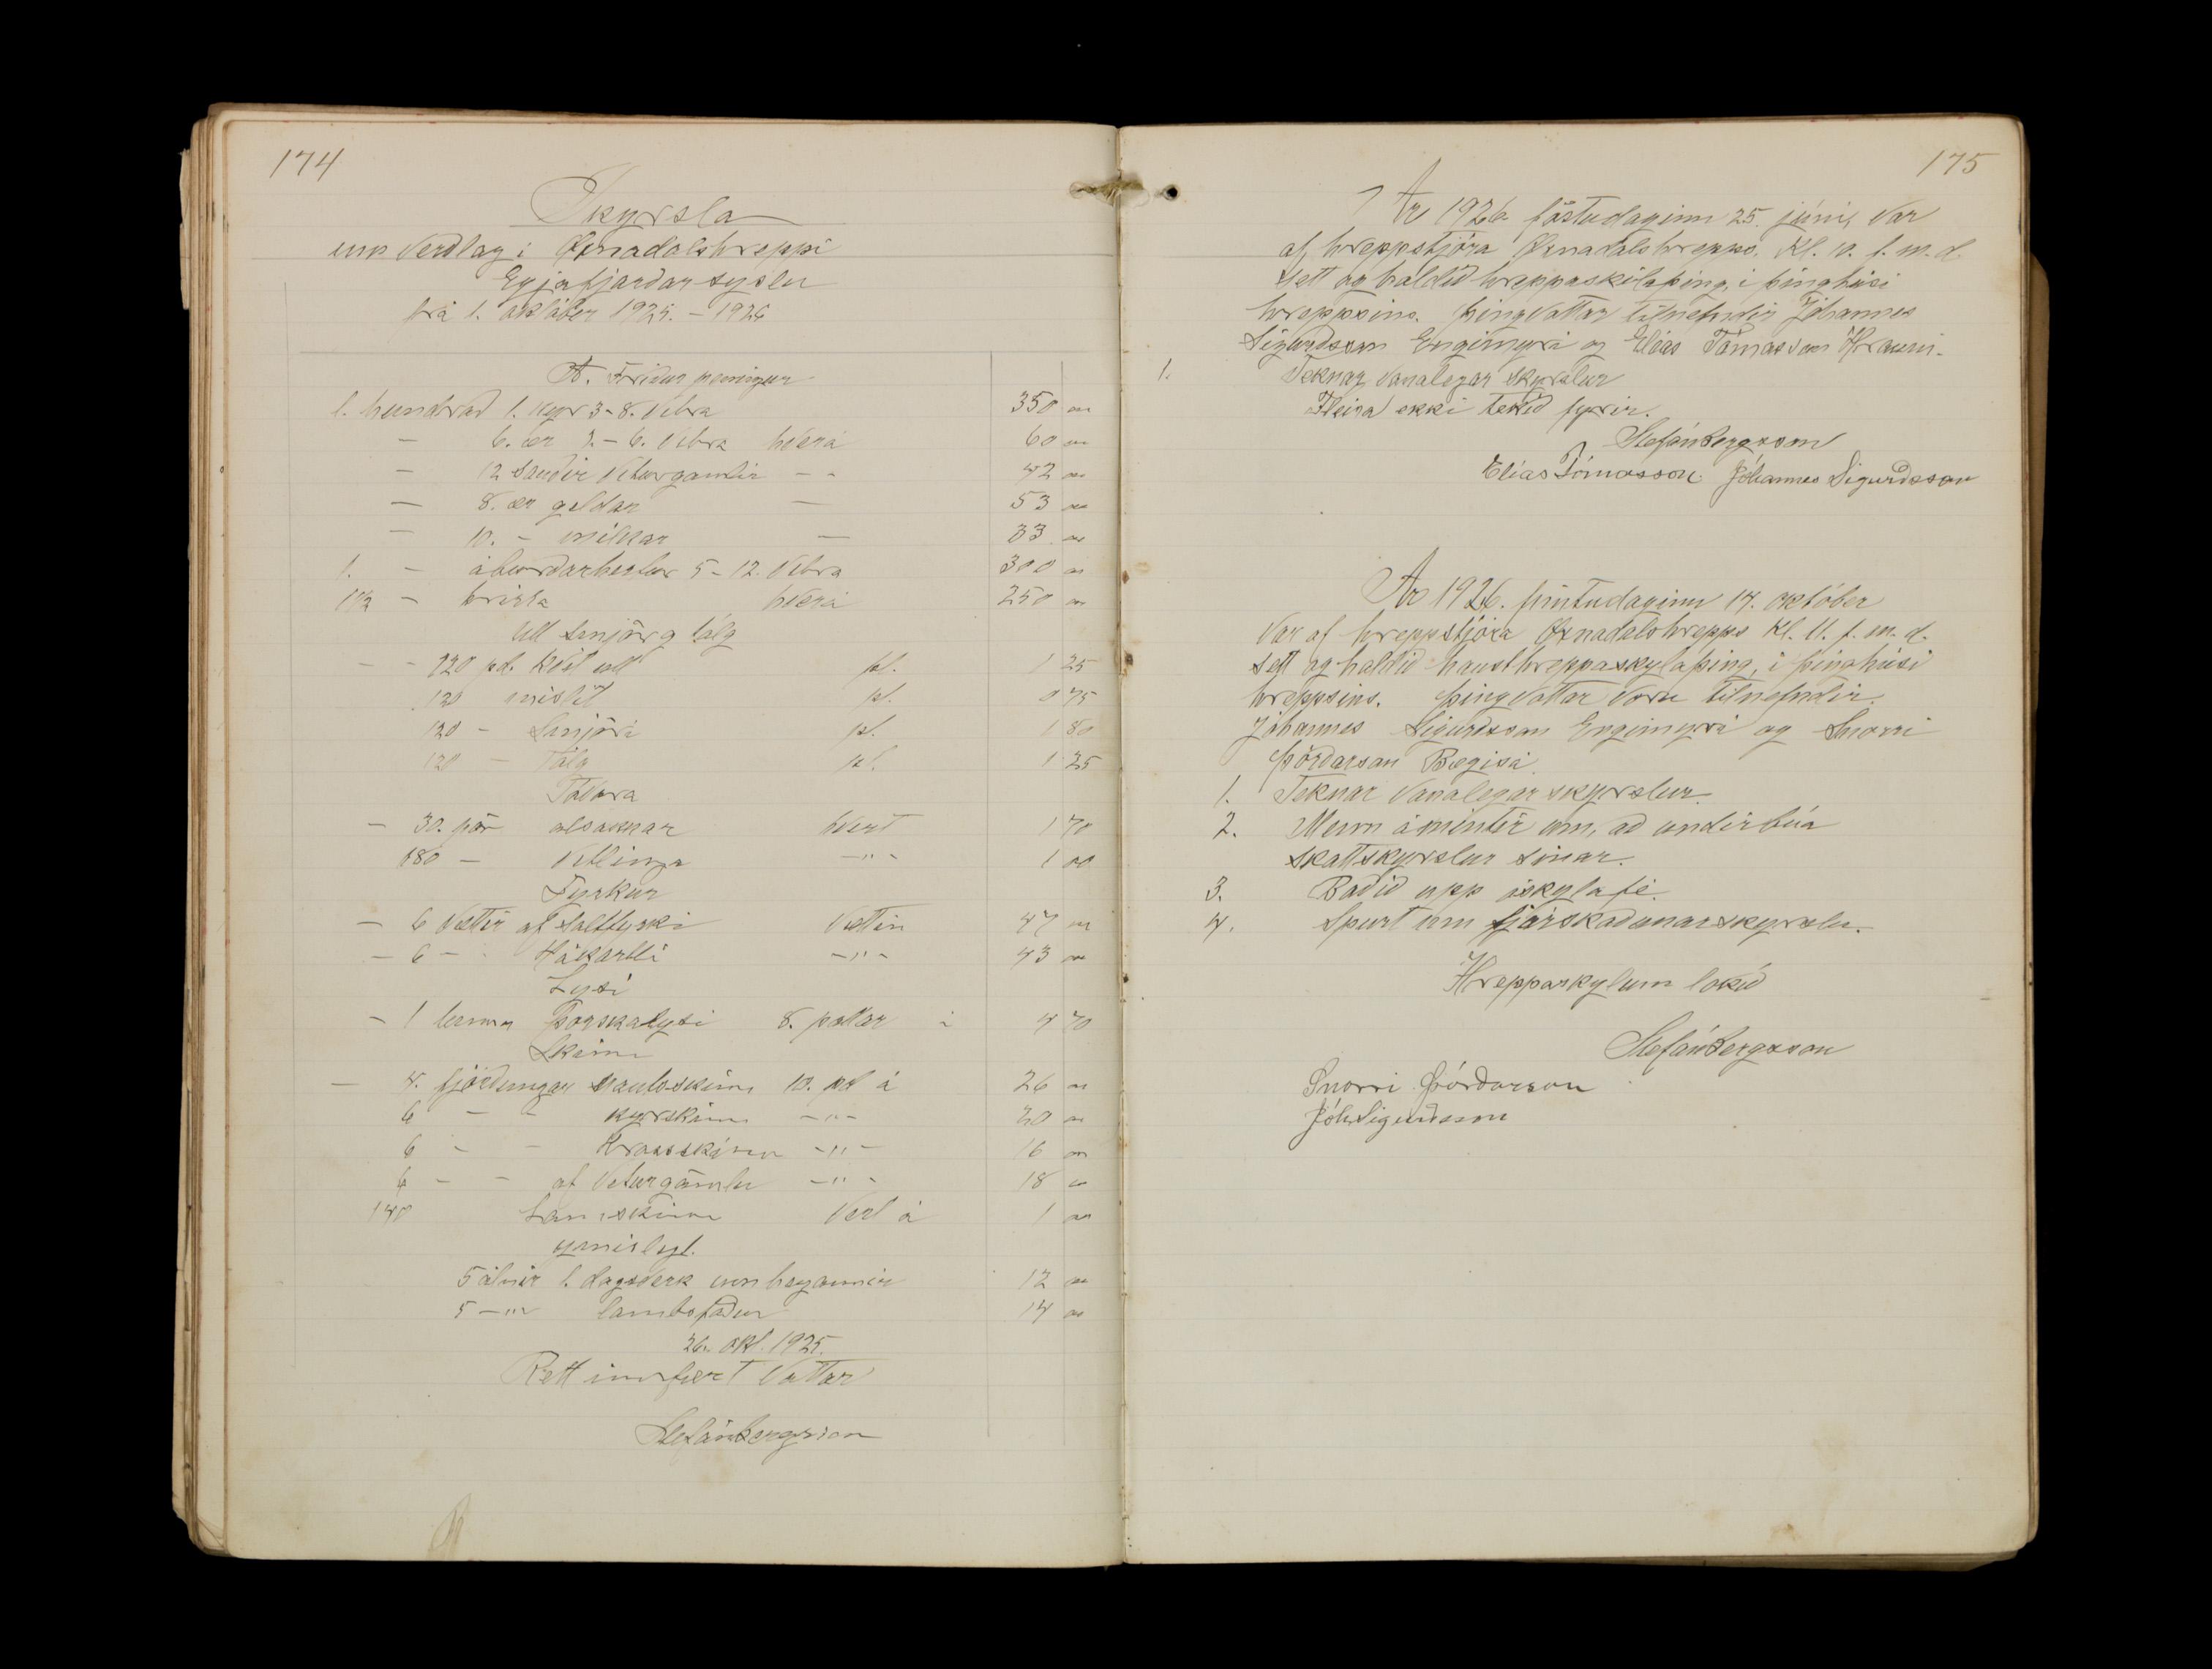 174
Skyrsla
um Verdlag i Öxnadalshreppi
Eyjafjardarsyslu
frá 1. október 1925. – 1926
A. Fridur peningur
1. hundrad 1. kyr 3-8. Vetra 350 00
— 6. ær 2.-6. Vetra hver á 60 00
— 12 Saudir Veturgamlir – - 42 00
— 8. ær geldar — 53 00
— 10. – milkar — 33 00
1. – áburdarhestur 5-12. Vetra 300 00
1 1/2 – hrissa hver á 250 00
Ull Smjör og tólg
- - 120 pd. hvit ull pd. 1 25
120 mislit pd. 0 75
120 - Smjöri pd. 1 80
120 – Tólg pd. 1 25
Tóvara
– 30. pör alsoknar hvert 1 70
180 – Vetlinga –"– 1 00
Fyskur
– 6 Vættir af Saltfyski Vættin 47 00
– 6 – Hákarli –"– 43 00
Lysi
– 1 tunna Þorskalysi 8. pottar á 4 70
Skinn
— 4. fjórdungar nautsskinn 10. pd á 26 00
6 – - kyrskinn –"– 20 00
6 - - Hrossskinn –"– 16 00
6 – – af Veturgömlu –"- 18 00
140 Lamskinn Vert á 1 00
ymislegt.
5 álnir 1. dagsverk um heyannir 12 00
5 –"" lambsfódur 14 00
26. okt. 1925.
Rett innfært Vottar
Stefán Bergsson
175
Ár 1926 föstudaginn 25. júní, Var
af hreppstjóra Öxnadalshrepps. Kl. 10. f. m. d.
sett og haldid hreppaskilaþing, i þinghúsi
hreppsins. Þingvottar tilnefndir Jóhannes
Sigurdsson Engimyri og Elias Tómasson Hrauni.
1. Teknar Vanalegar skyrslur
Fleira ekki tekid fyrir.
Stefán Bergsson
Elías Tómasson Jóhannes Sigurdsson
Ár 1926. fimtudaginn 14. október
Var af hreppstjóra Öxnadalshrepps Kl. 11. f. m. d.
sett og haldid hausthreppaskylaþing, i þinghúsi
hreppsins. Þingvottar Voru tilnefndir
Jóhannes Sigurdsson Engimyri og Snorri
Þórdarson Bægisá.
1. Teknar Vanalegar skyrslur.
2. Menn ámintir um, ad undirbúa
skattskyrslur sinar.
3. Bodid upp óskylafé.
4. Spurt um fjárskadunarskyrslu.
Hreppaskylum lokid
Stefán Bergsson
Snorri Þórdarson
Jóh. Sigurdsson